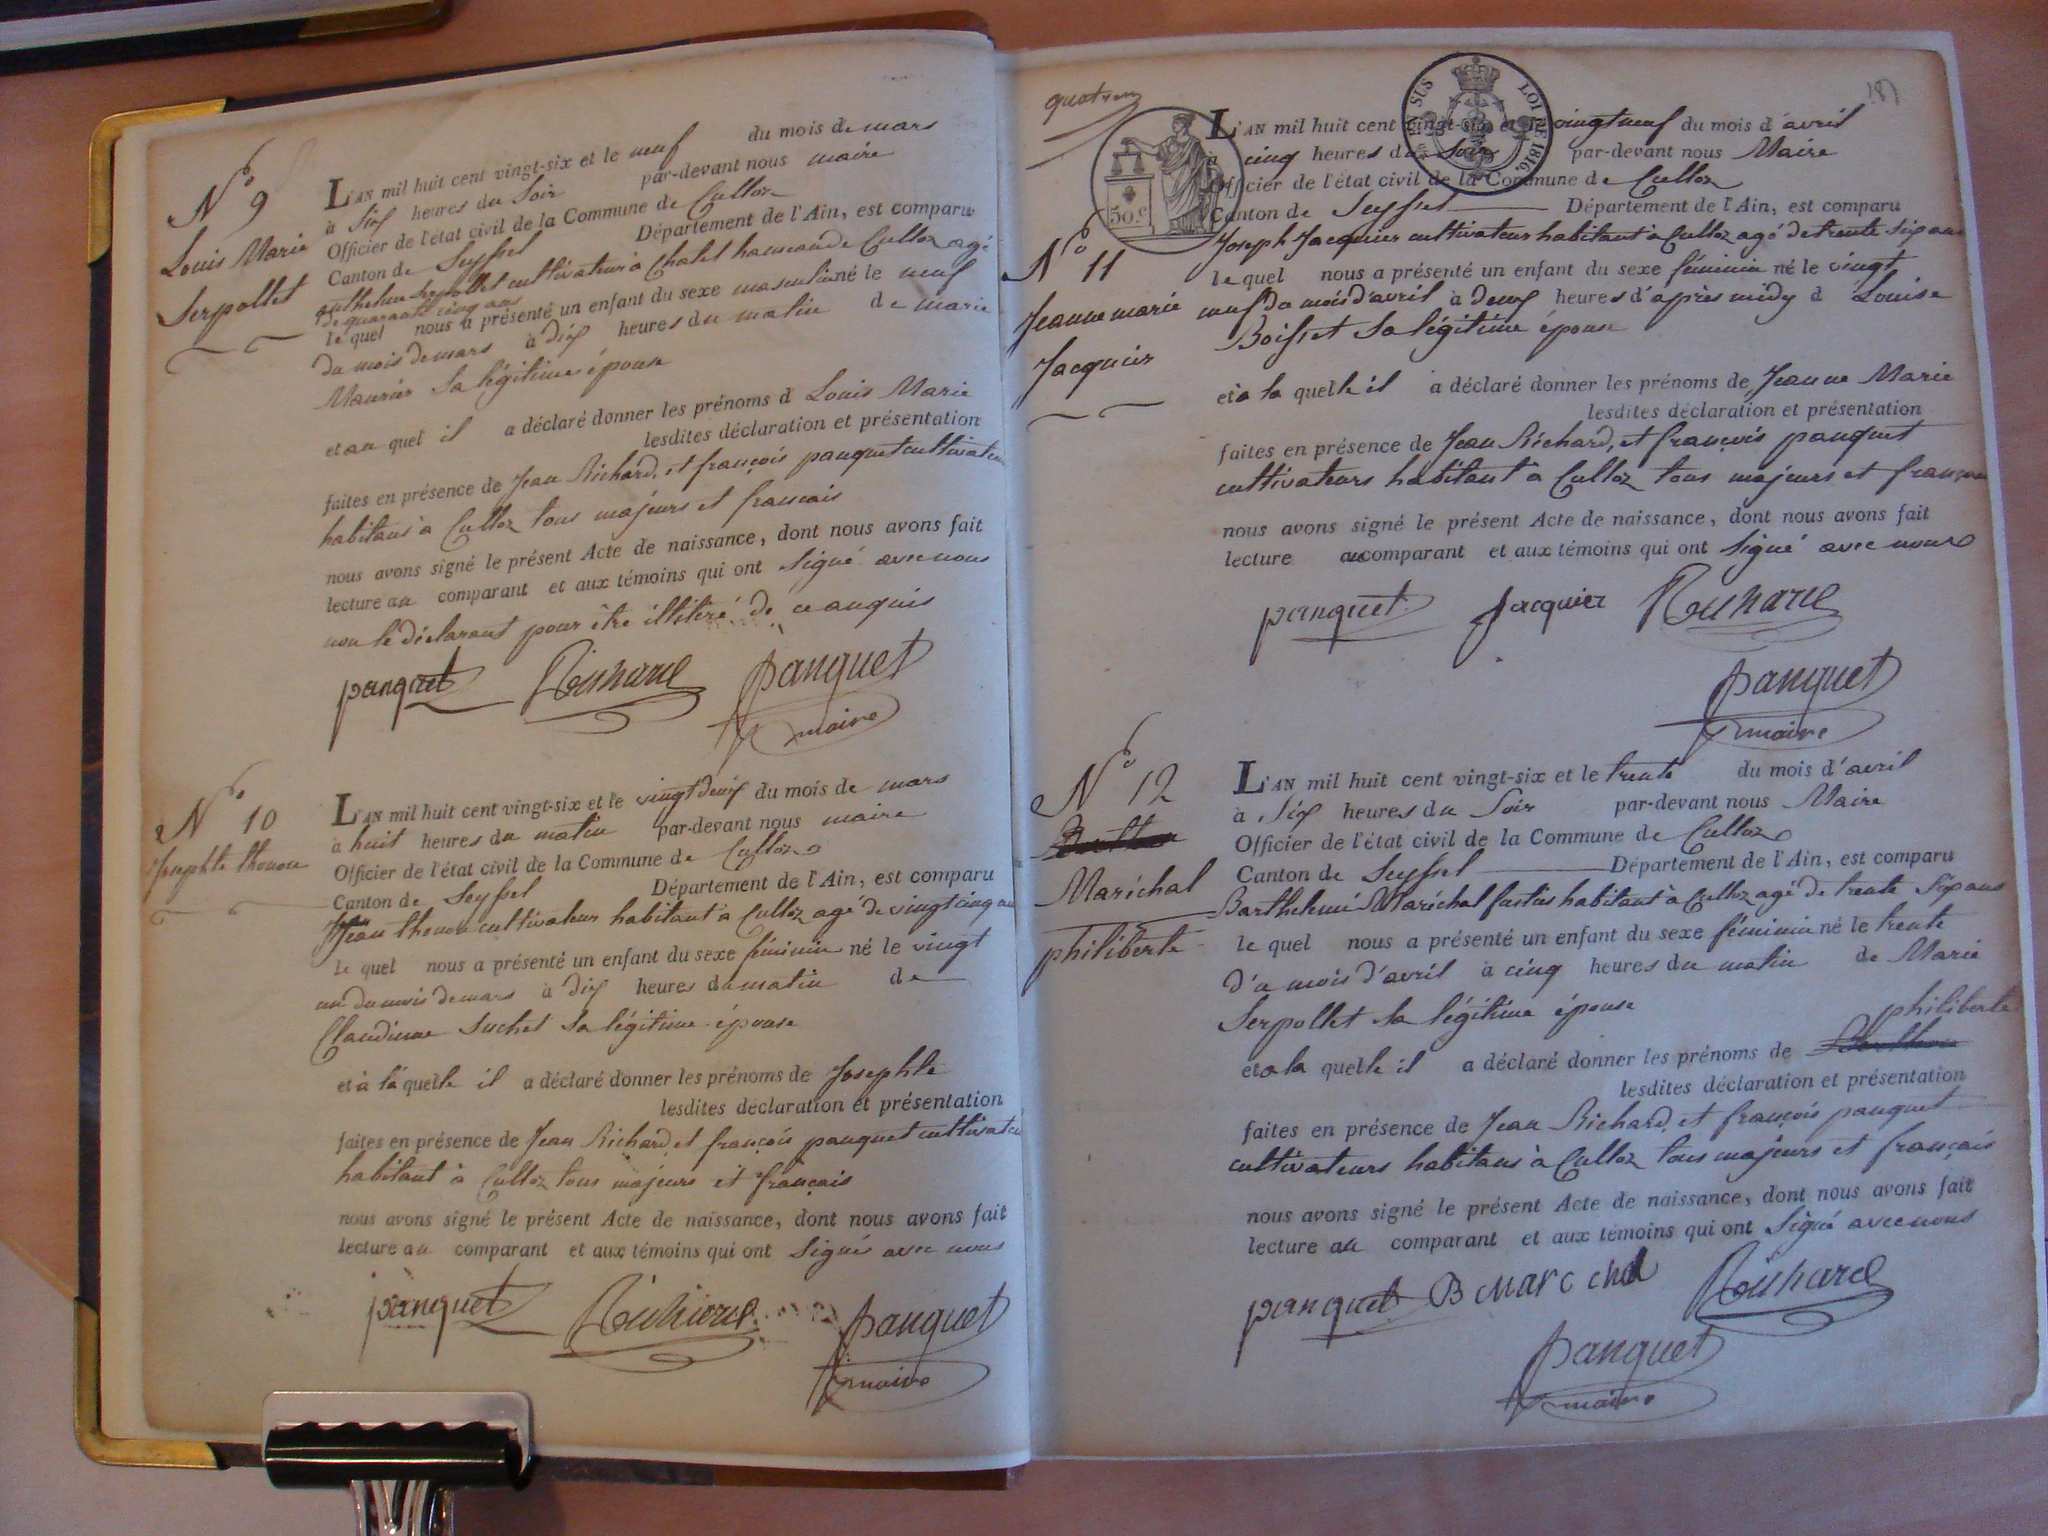 N° 9
Louis Marie
Serpollet
L'AN mil huit cent vingt-six et le neuf du mois de mars
à six heures du Soir par-devant nous maire
Officier de l'état civil de la Commune de Culloz
Canton de Seyssel Département de l'Ain, est comparu
anthelme Serpollet cultivateur à Chatel hameau de Culloz agé
de quarante cinq ans
le quel nous a présenté un enfant du sexe masculin né le neuf
du mois de mars à dix heures du matin de marie
Maurier Sa légitime épouse
et au quel il a déclaré donner les prénoms d Louis Marie
lesdites déclaration et présentation
faites en présence de Jean Richard, et françois panquet cultivateurs
habitans à Culloz tous majeurs et francais
nous avons signé le présent Acte de naissance, dont nous avons fait
lecture au comparant et aux témoins qui ont Signé avec nous
non le déclarant pour être illitiré de ce anquis
panquet Richard panquet
maire
N° 10
Josephte thonon
L'AN mil huit cent vingt-six et le vingt deux du mois de mars
à huit heures du matin par-devant nous maire
Officier de l'état civil de la Commune de Culloz
Canton de Seyssel Département de l'Ain, est comparu
Jean thonon cultivateur habitant à Culloz agé de vingt cinq ans
le quel nous a présenté un enfant du sexe féminin né le vingt
un du mois de mars à dix heures du matin de
Claudinne Suchet Sa légitime épouse
et à la quelle il a déclaré donner les prénoms de Josephte
lesdites déclaration et présentation
faites en présence de Jean Richard et françois panquet cultivateurs
habitant à Culloz tous majeurs et français
nous avons signé le présent Acte de naissance, dont nous avons fait
lecture au comparant et aux témoins qui ont Signés avec nous
panquet Richard panquet
maire
187
50 c
SUS LOI DE 1816
N° 11
Jeanne marie
Jacquier
L'AN mil huit cent vingt-six et le vingt neuf du mois d'avril
à cinq heures du Soir par-devant nous Maire
Officier de l'état civil de la Commune de Culloz
Canton de Seyssel Département de l'Ain, est comparu
Joseph Jacquier cultivateur habitant à Culloz agé de trente Six ans
le quel nous a présenté un enfant du sexe féminin né le vingt
neuf du mois d'avril à deux heures d'après midy d Louise
Boisset Sa légitime épouse
et a la quelle il a déclaré donner les prénoms de Jeanne Marie
lesdites déclaration et présentation
faites en présence de Jean Richard, et françois panquet
cultivateurs habitant à Culloz tous majeurs et français
nous avons signé le présent Acte de naissance, dont nous avons fait
lecture au comparant et aux témoins qui ont Signé avec nous
panquet Jacquier Richard
panquet
maire
N° 12
Maréchal
philiberte
L'AN mil huit cent vingt-six et le trente du mois d'avril
à Six heures du Soir par-devant nous Maire
Officier de l'état civil de la Commune de Culloz
Canton de Seyssel Département de l'Ain, est comparu
Barthelemi Maréchal habitant à Culloz agé de trente Six ans
le quel nous a présenté un enfant du sexe féminin né le trente
d'u mois d'avril à cinq heures du matin de Marie
Serpollet Sa légitime épouse
philiberte
et a la quelle il a déclaré donner les prénoms de
lesdites déclaration et présentation
faites en présence de Jean Richard, et françois panquet
cultivateurs habitans à Culloz tous majeurs et français
nous avons signé le présent Acte de naissance, dont nous avons fait
lecture au comparant et aux témoins qui ont Signé avec nous
panquet B Marcchal Richard
panquet
maire